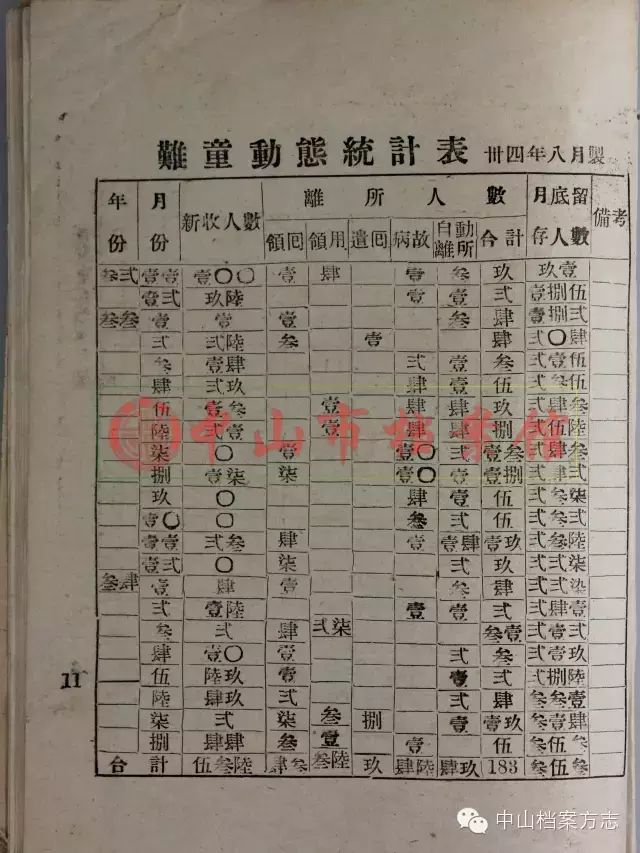 難童動態統計表 卅四年八月製
年份 月份 新收人數 離所人數 月底留存人數 備考
領回 領用 遣回 病故 自動離所 合計
叁弍 壹壹 壹〇〇 壹 肆 壹 叁 玖 玖壹
壹弍 玖陸 壹 壹 弍 壹捌伍
叁叁 壹 壹 壹 叁 肆 壹捌弍
弍 弍陸 叁 壹 肆 弍〇肆
叁 壹肆 弍 壹 叁 弍壹伍
肆 弍玖 肆 壹 伍 弍叁伍
伍 壹叁 壹 肆 肆 玖 弍肆叁
陸 弍壹 壹 肆 肆 弍伍陸
柒 〇 壹 壹〇 弍 壹叁 弍肆叁
捌 壹柒 柒 壹〇 壹 壹捌 弍肆弍
玖 〇 肆 壹 伍 弍叁柒
壹〇 〇 叁 弍 伍 弍叁弍
壹壹 弍叁 肆 壹 壹肆 壹玖 弍叁陸
壹弍 〇 柒 弍 玖 弍弍柒
叁肆 壹 肆 壹 叁 肆 弍弍柒
弍 壹陸 壹 壹 弍 弍肆壹
叁 弍 肆 弍柒 叁壹 弍壹弍
肆 壹〇 壹 弍 叁 弍壹玖
伍 陸玖 壹 壹 弍 弍捌陸
陸 肆玖 弍 弍 肆 叁叁壹
柒 弍 柒 叁 捌 壹 壹玖 叁壹肆
捌 肆肆 叁 壹 壹 伍 叁伍叁
合計 伍叁陸 肆叁 叁陸 玖 肆陸 肆玖 183 叁伍叁
11
中山市档案馆
中山档案方志